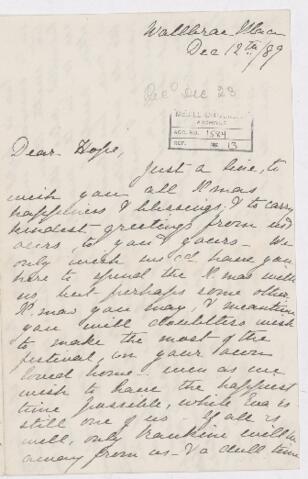 Wallbrae Place
Dec 12th/89
Rec'd Dec 23
McGILL UNIVERSITY
ARCHIVES
ACC. NO. 1584
REF. 13
Dear Hope,
Just a line, to
wish you all X'mas
happiness & blessings, & to carry
kindest greetings from us &
ours, to you & yours - We
only wish we cd have you
here to spend the X'mas with
us, but perhaps some other
X'mas you may, & meantime
you will doubtless wish
to make the most of the
festival, in your own
loved home - even as we
wish to have the happiest
time possible, while Eva is
still one of us - If all is
well, only Rankine will be
away from us - & a dull time